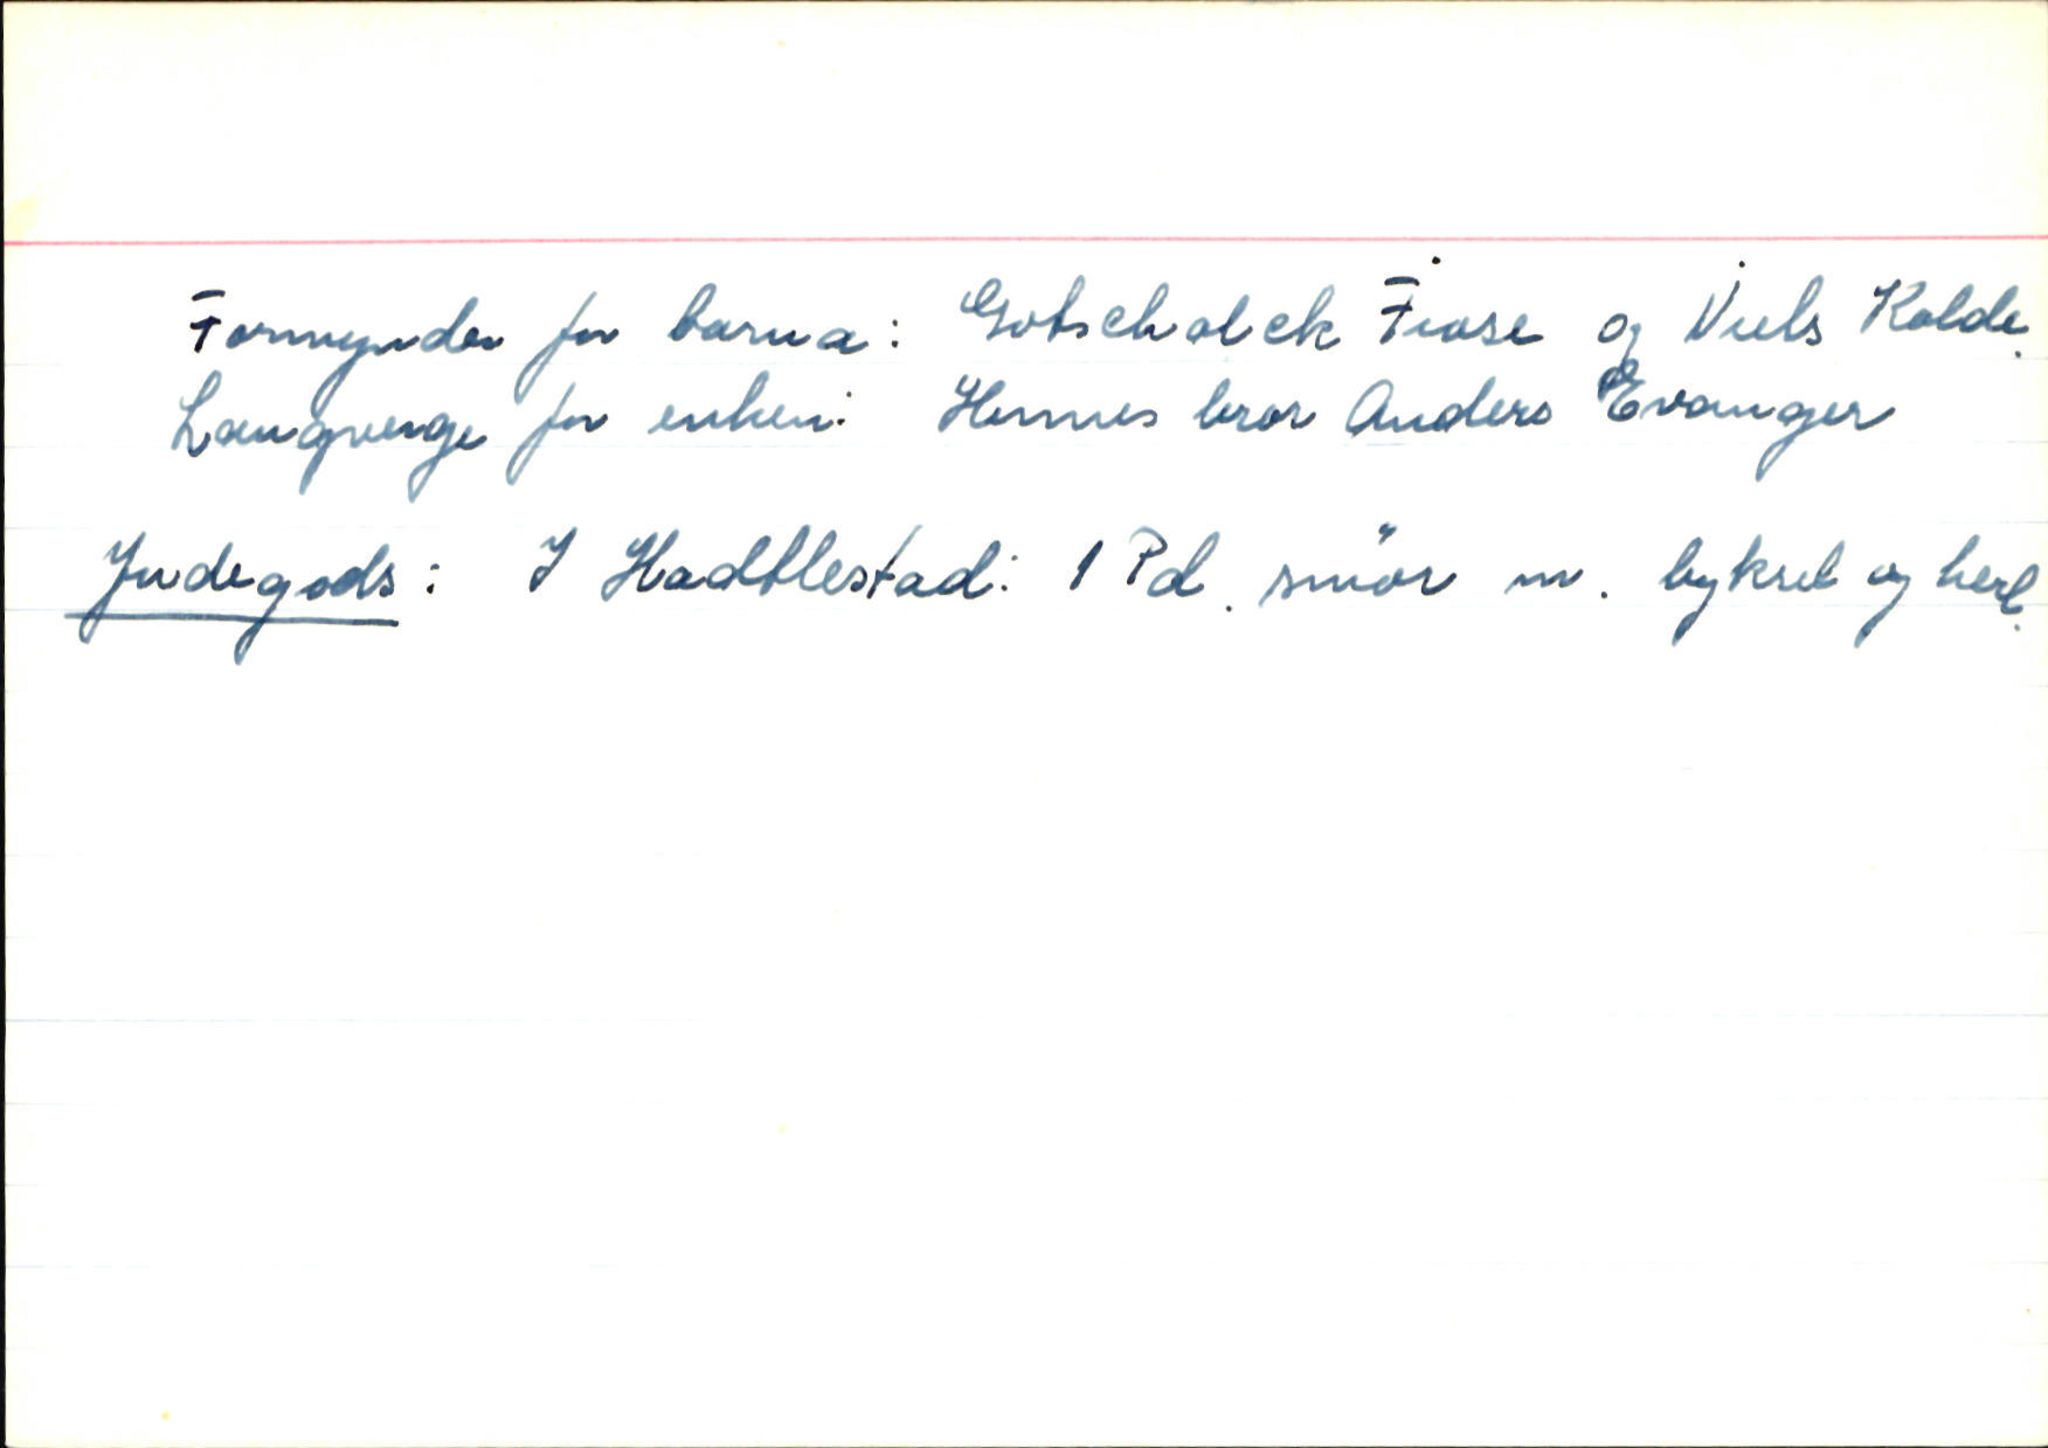 Formynder for barna: Gotschalck Fiose og Niels Kolde.
Laugverge for enken: Hennes bror Anders Evanger
Jordegods: I Hadtlestad: 1 Pd. smör m. byksel og herl.